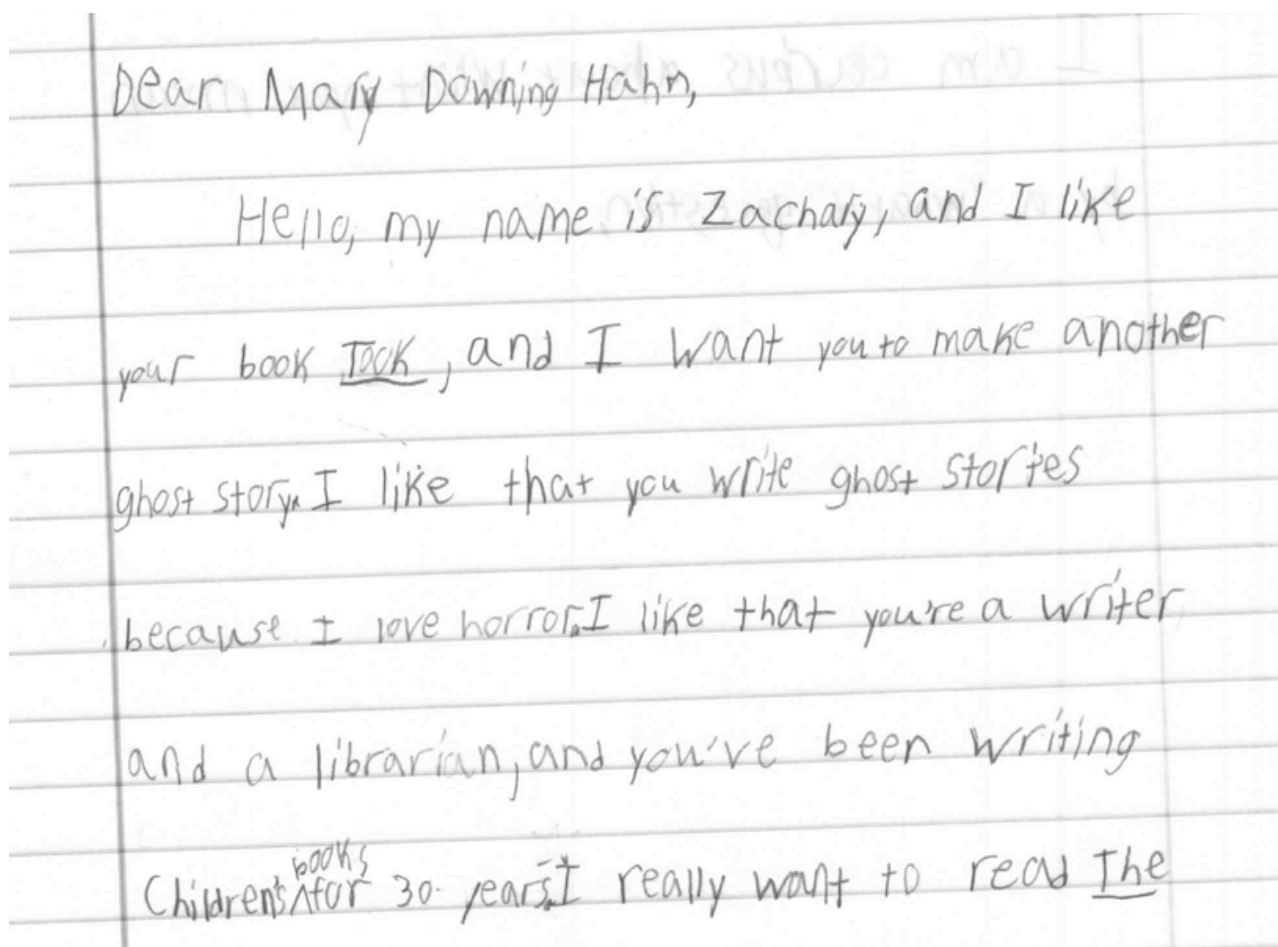 Dear Mary Downing Hahn,
Hello, my name is Zachary, and I like
your book Took, and I want you to make another
ghost story. I like that you write ghost stories
because I love horror. I like that you're a writer
and a librarian, and you've been writing
Children's books for 30 years. I really want to read The